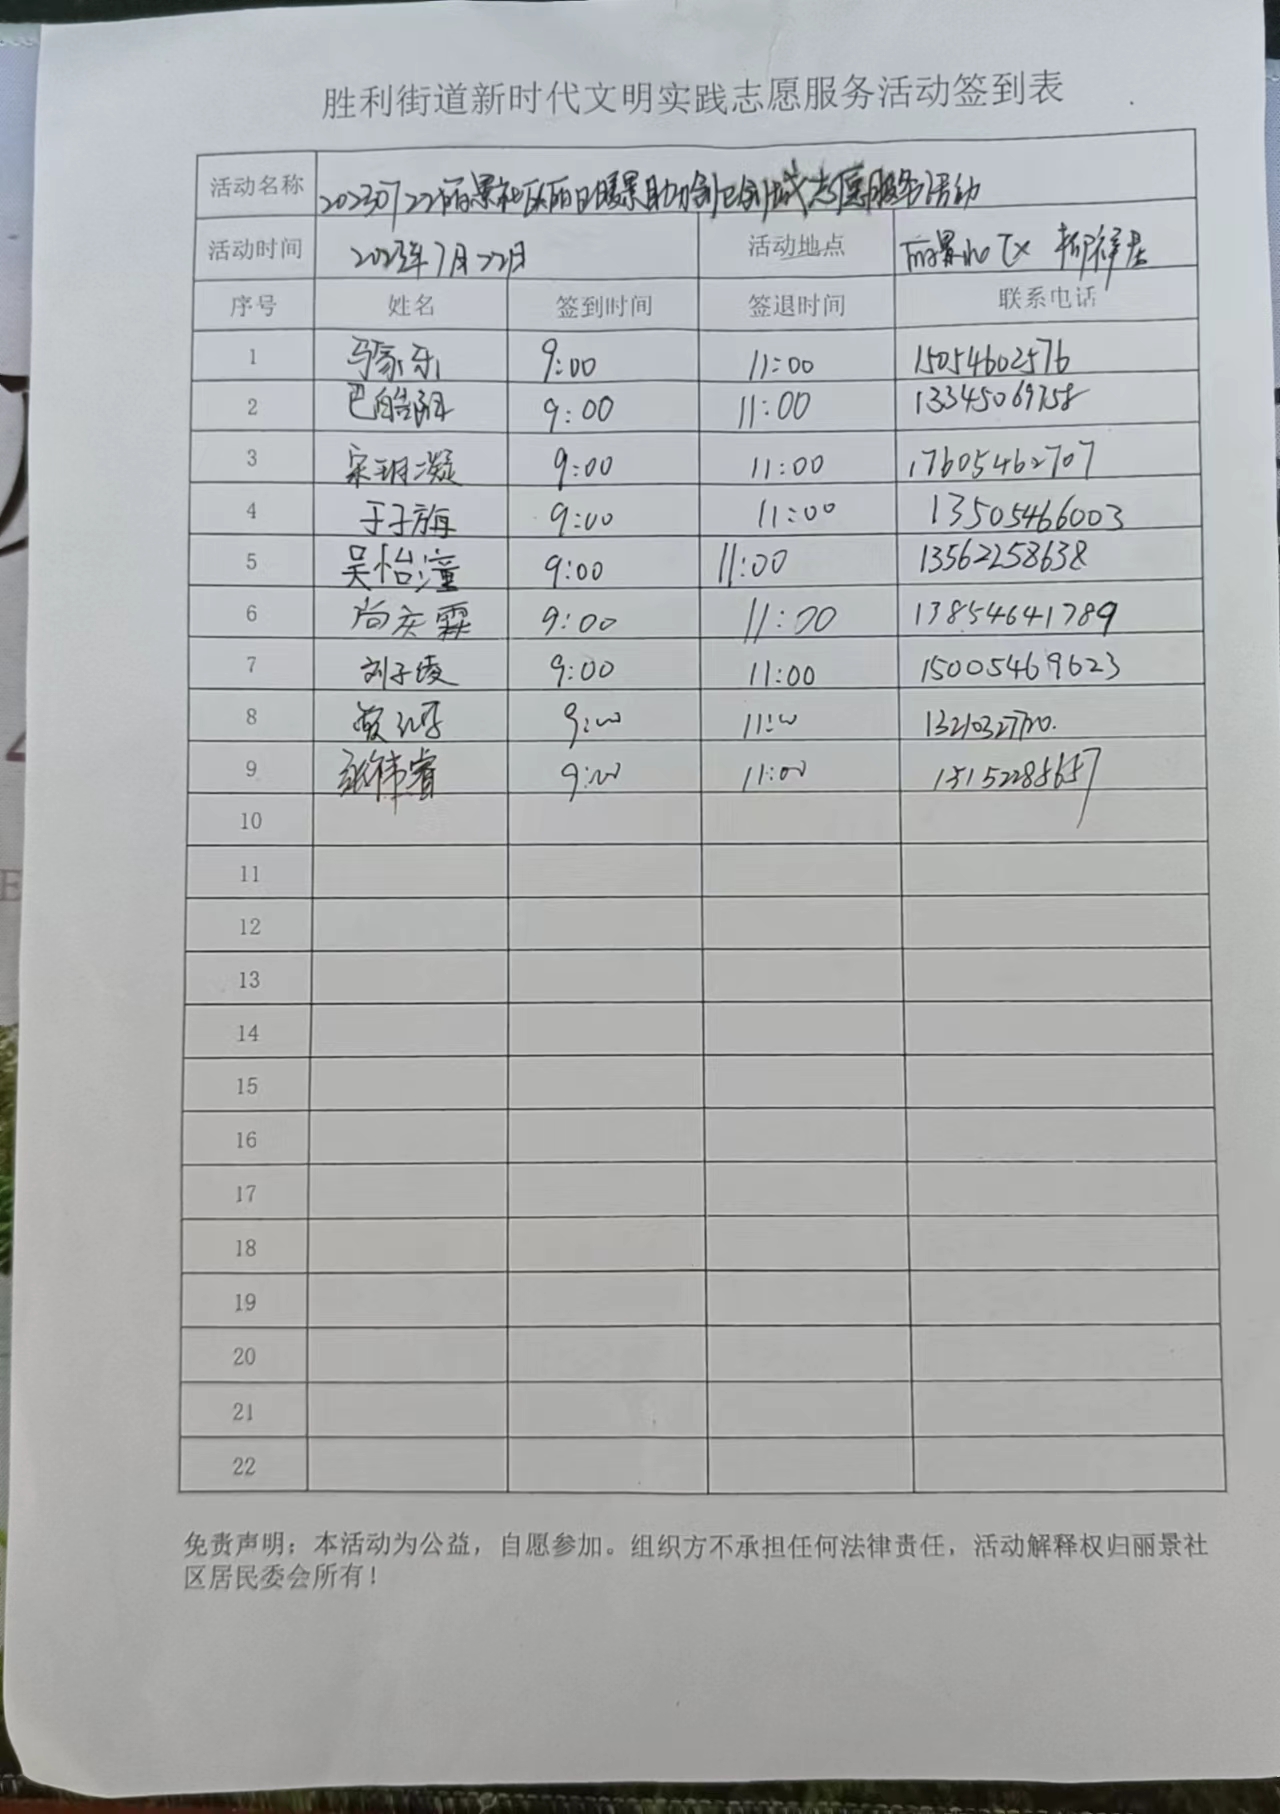 胜利街道新时代文明实践志愿服务活动签到表
活动名称 20230722丽景社区丽日暖景助力创卫创城志愿服务活动
活动时间 2023年7月22日 活动地点 丽景社区
序号 姓名 签到时间 签退时间 联系电话
1 马家乐 9:00 11:00 15054602576
2 巴皓 9:00 11:00 13345069758
3 宋玥凝 9:00 11:00 17605462707
4 于子旃 9:00 11:00 13505466003
5 吴怡潼 9:00 11:00 13562258638
6 尚庆霖 9:00 11:00 13854641789
7 刘子凌 9:00 11:00 15005469623
8 9:00 11:00
9 张祎睿 9:00 11:00 15152285657
10
11
12
13
14
15
16
17
18
19
20
21
22
免责声明：本活动为公益，自愿参加。组织方不承担任何法律责任，活动解释权归丽景社
区居民委会所有！